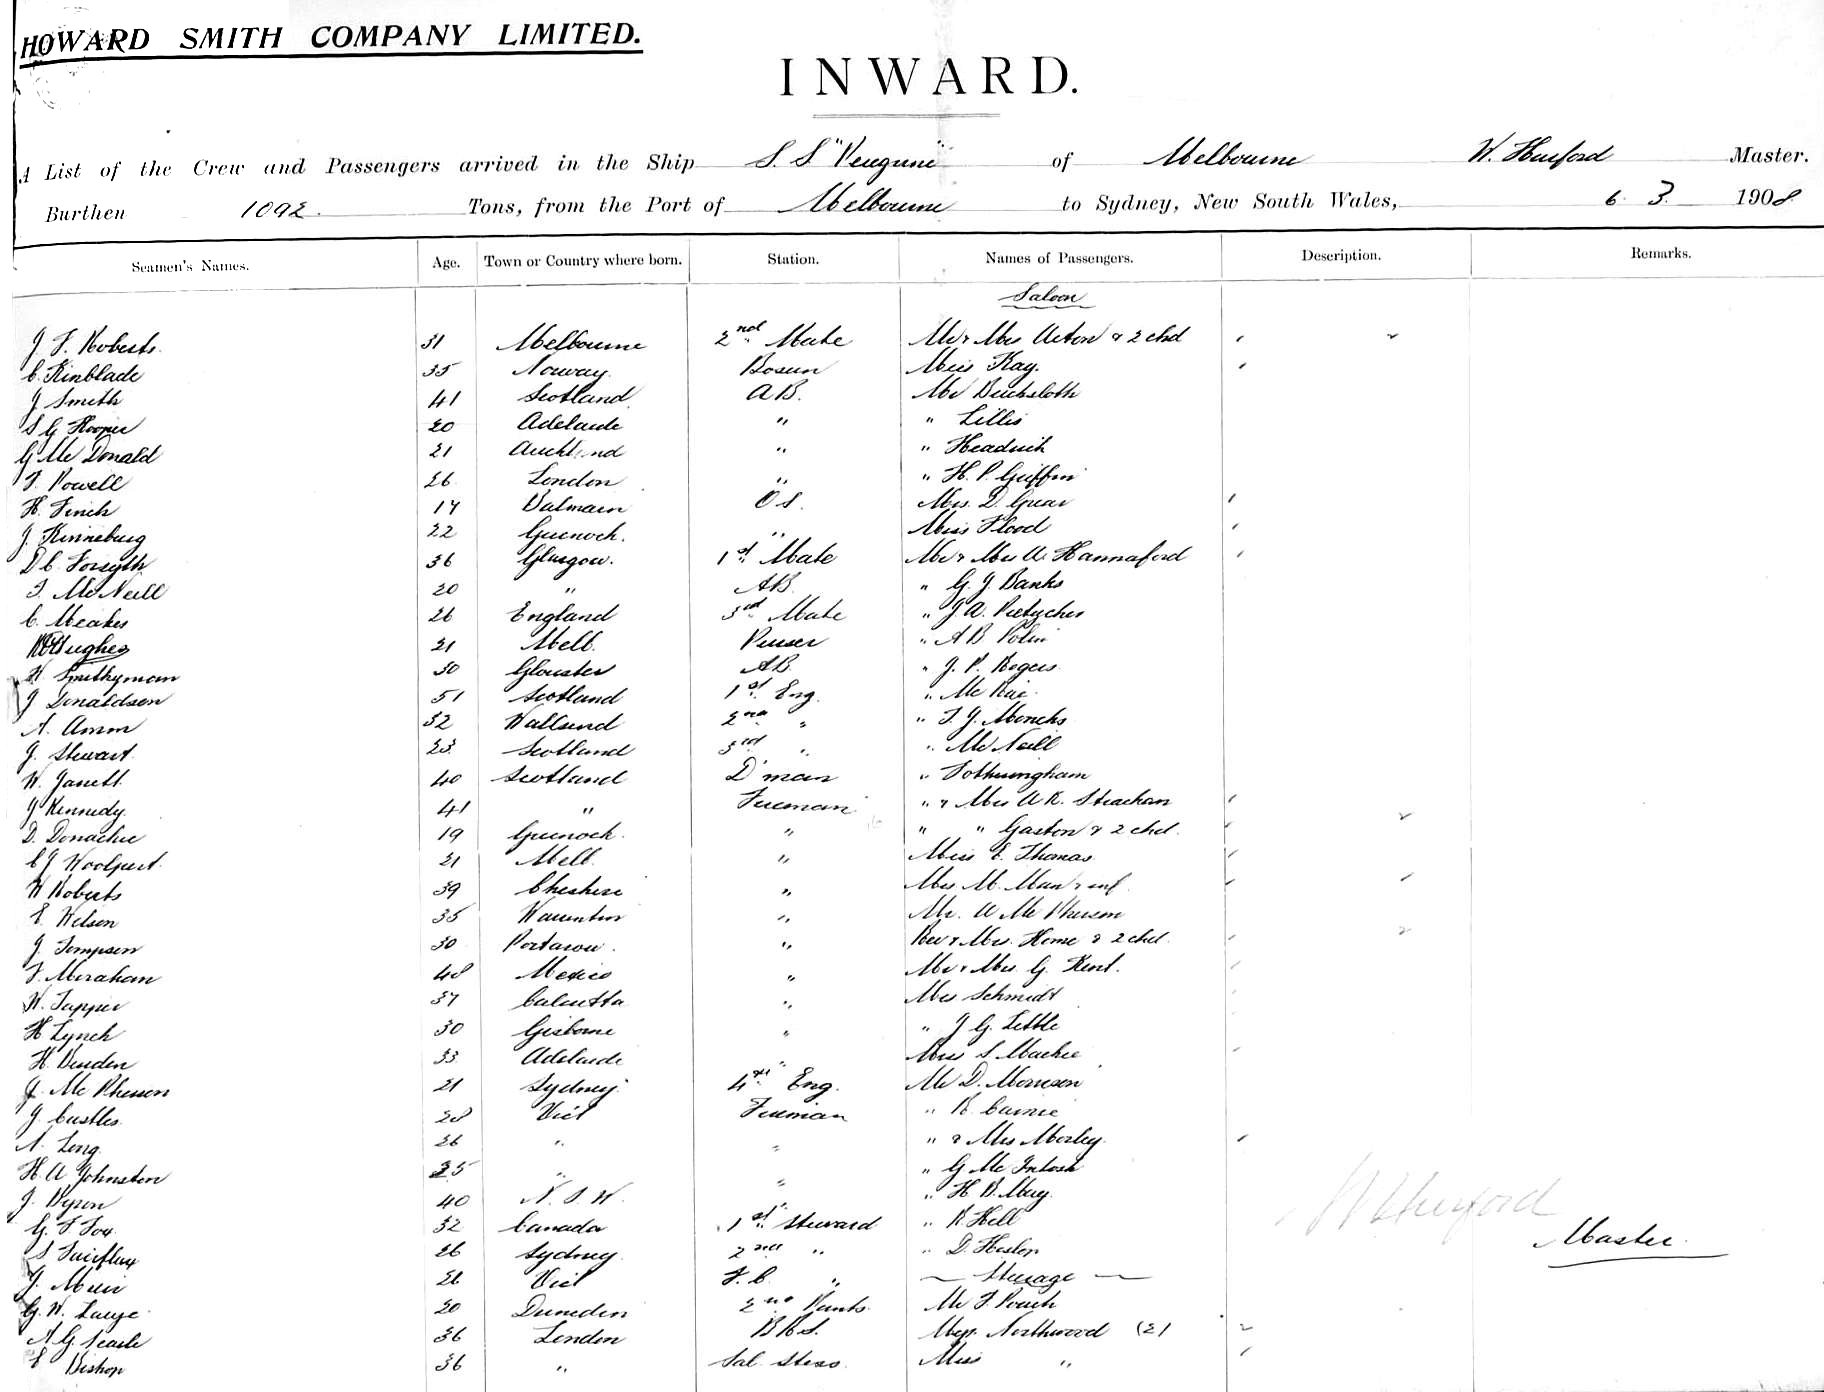 HOWARD SMITH COMPANY LIMITED.
INWARD.
A List of the Crew and Passengers arrived in the Ship S. S "Peregrine" of Melbourne W. Hurford Master.
Burthen 1092. Tons, from the Port of Melbourne to Sydney, New South Wales, 6. 3. 1908.
Seamen's Names. Age. Town or Country where born. Station. Names of Passengers. Description. Remarks.
Saloon
J. F. Roberts. 31 Melbourne 2nd Mate Mr & Mrs Acton & 2 chd
C. Kinblade 35 Norway. Bosun Miss Kay.
J Smith 41 Scotland AB. Mr
S G Hooper 20 Adelaide " " Lillis
G Mc Donald 21 Auckland " "
F. Powell 26 London " " H. P. Griffin
H. Finch 17 Balmain OS. Mrs. D. Grear
J. Kinneburg 22 Greenock. " Miss Flood
D C. Forsyth 36 Glasgow. 1st Mate Mr & Mrs A. Hannaford
J. Mc Neill 20 " AB. " G. J Banks
C. Meakes 26 England 3rd Mate " J. A.
Hughes 21 Melb. Purser " A B Polin
W. Smithyman 30 Glouster AB " J. P. Rogers
J Donaldson 51 Scotland 1st Eng. " Mc Rae
A. Amm 32 Wallsend 2nd " " F. J. Moncks
J. Stewart. 23 Scotland 3rd " " Mc Neill
W. Jarrett. 40 Scotland D'man " Fothringham
J Kennedy. 41 " Fireman " & Mrs A R. Strachan
D. Donachie 19 Greenock. " " " Gaston & 2 chd.
C J Woolgust. 21 Melb. " Miss E. Thomas
W Roberts 39 Cheshire " Mrs M. Man & inf.
E. Wilson 35 " Mr. A Mc Pherson
J. Tompson 30 " Rev & Mrs. Home & 2 chd.
F. Miraham 48 Mexico " Mr & Mrs. G. Kent.
W. Tapper 37 Calcutta " Mrs Schmidt
H Lynch 30 Gisborne " " J G. Little
H. Burden 33 Adelaide " Miss S Mackie
J. Mc Pherson 21 Sydney 4th Eng. Mr D. Morrison
J. Castles 28 Vict Fireman " R. Carnie
A. Long 26 " " " & Mrs Morley.
H. A Johnston 25 " " " G Mc Intosh
J. Byron 40 N. S. W. " " H. B. May.
G. F Fox 32 Canada 1st Steward " R. Hell
S Fairflax 26 Sydney. 2nd " " D. Heslop
J. Muir 26 Vict F. C. " — Steerage —
G. W. Lauge 20 Dunedin 2nd Pants. Mr F. Poach
A G Searle 36 London B R S. Mrs. Northwood (2)
E Bishop 36 " Sal. Stess. Miss "
W Hurford
Master.